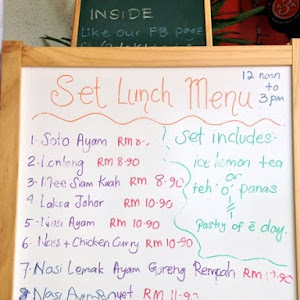 INSIDE
Like our FB page
Set Lunch Menu
12 noon
to
3 pm
1. Soto Ayam RM 8.
2. Lontong RM 8.90
3. Mee Siam Kuah RM 8.90
4. Laksa Johor RM 10.90
5. Nasi Ayam RM 10.90
6. Nasi + Chicken Curry RM 10.90
7. Nasi Lemak Ayam Goreng Rempah RM 10.90
8. Nasi Ayam Penyet RM 11.90
Set includes:
ice lemon tea
or
teh 'o' panas
&
Pastry of ē day.